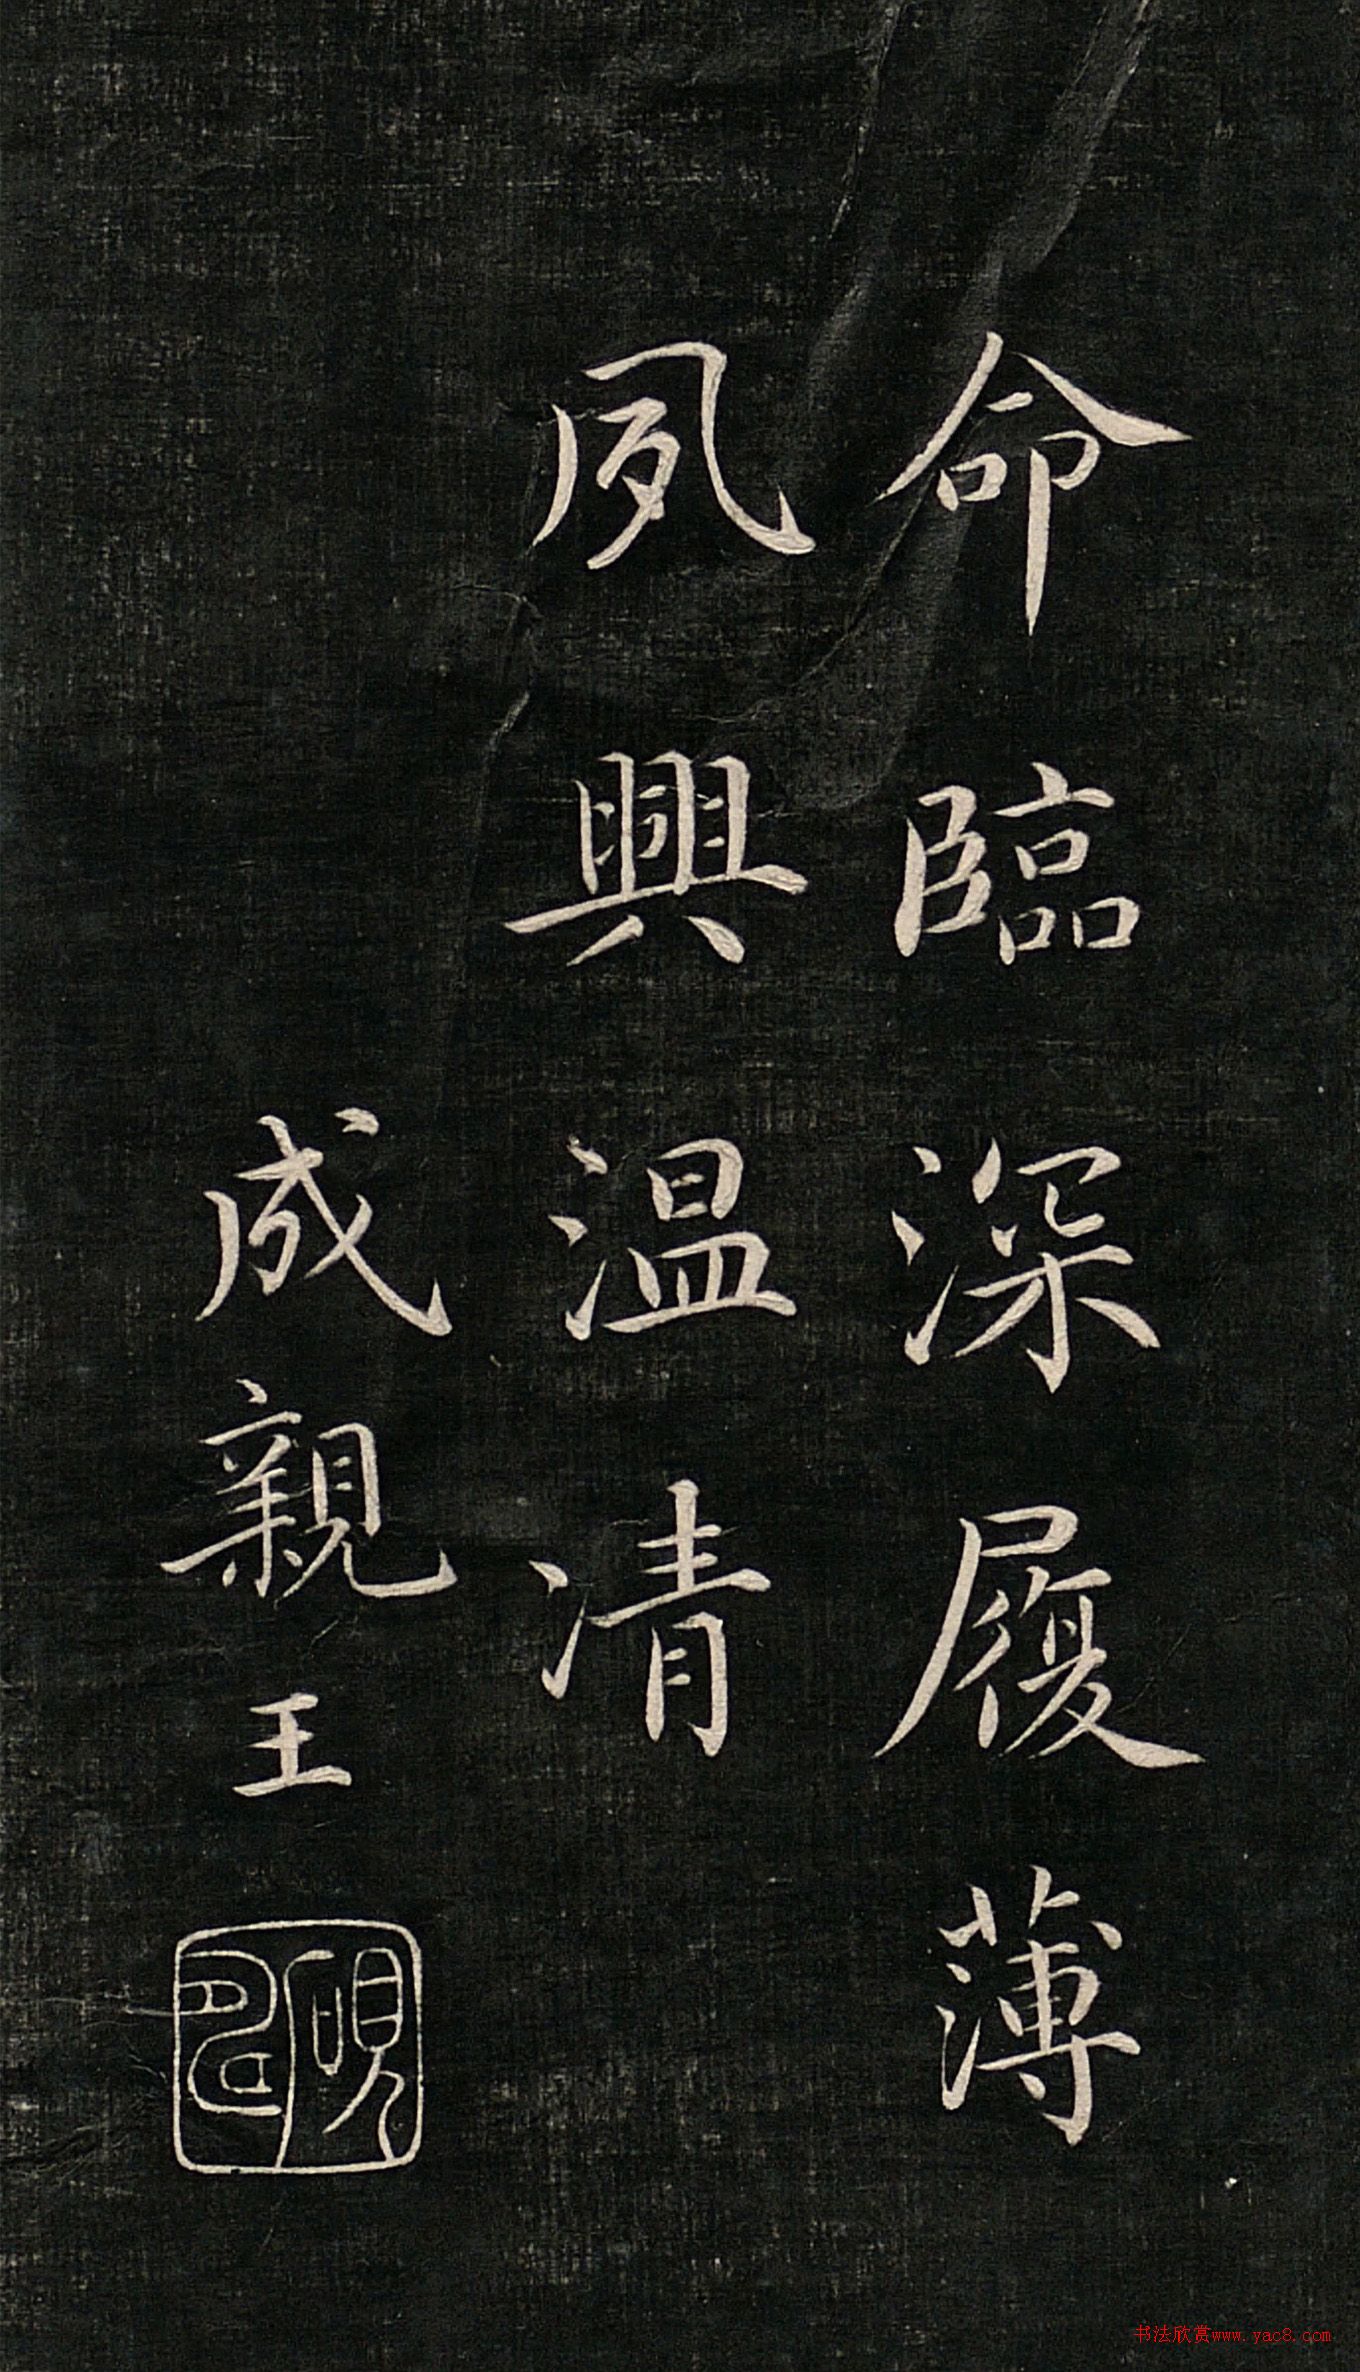 命臨深履薄
夙興温凊
成親王
书法欣赏www.yac8.com